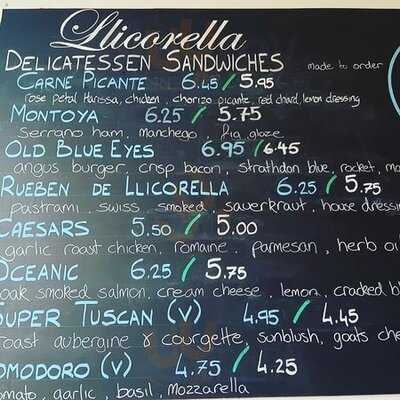 Llicorella
DELICATESSEN SANDWICHES made to order
CARNE PICANTE 6.45 / 5.95
rose petal Harissa, chicken, chorizo picante, red chard, lemon dressing
MONTOYA 6.25 / 5.75
Serrano ham, manchego, Fig glaze
OLD BLUE EYES 6.95 / 6.45
angus burger, crisp bacon, Strathdon blue, rocket,
RUEBEN DE LLICORELLA 6.25 / 5.75
pastrami, swiss, smoked, sauerkraut, house dressin
CAESARS 5.50 / 5.00
garlic roast chicken, romaine, parmesan, herb oi
OCEANIC 6.25 / 5.75
oak smoked salmon, cream cheese, lemon, cracked b
SUPER TUSCAN (V) 4.95 / 4.45
roast aubergine & courgette, sunblush, goats che
POMODORO (V) 4.75 / 4.25
tomato, garlic, basil, mozzarella